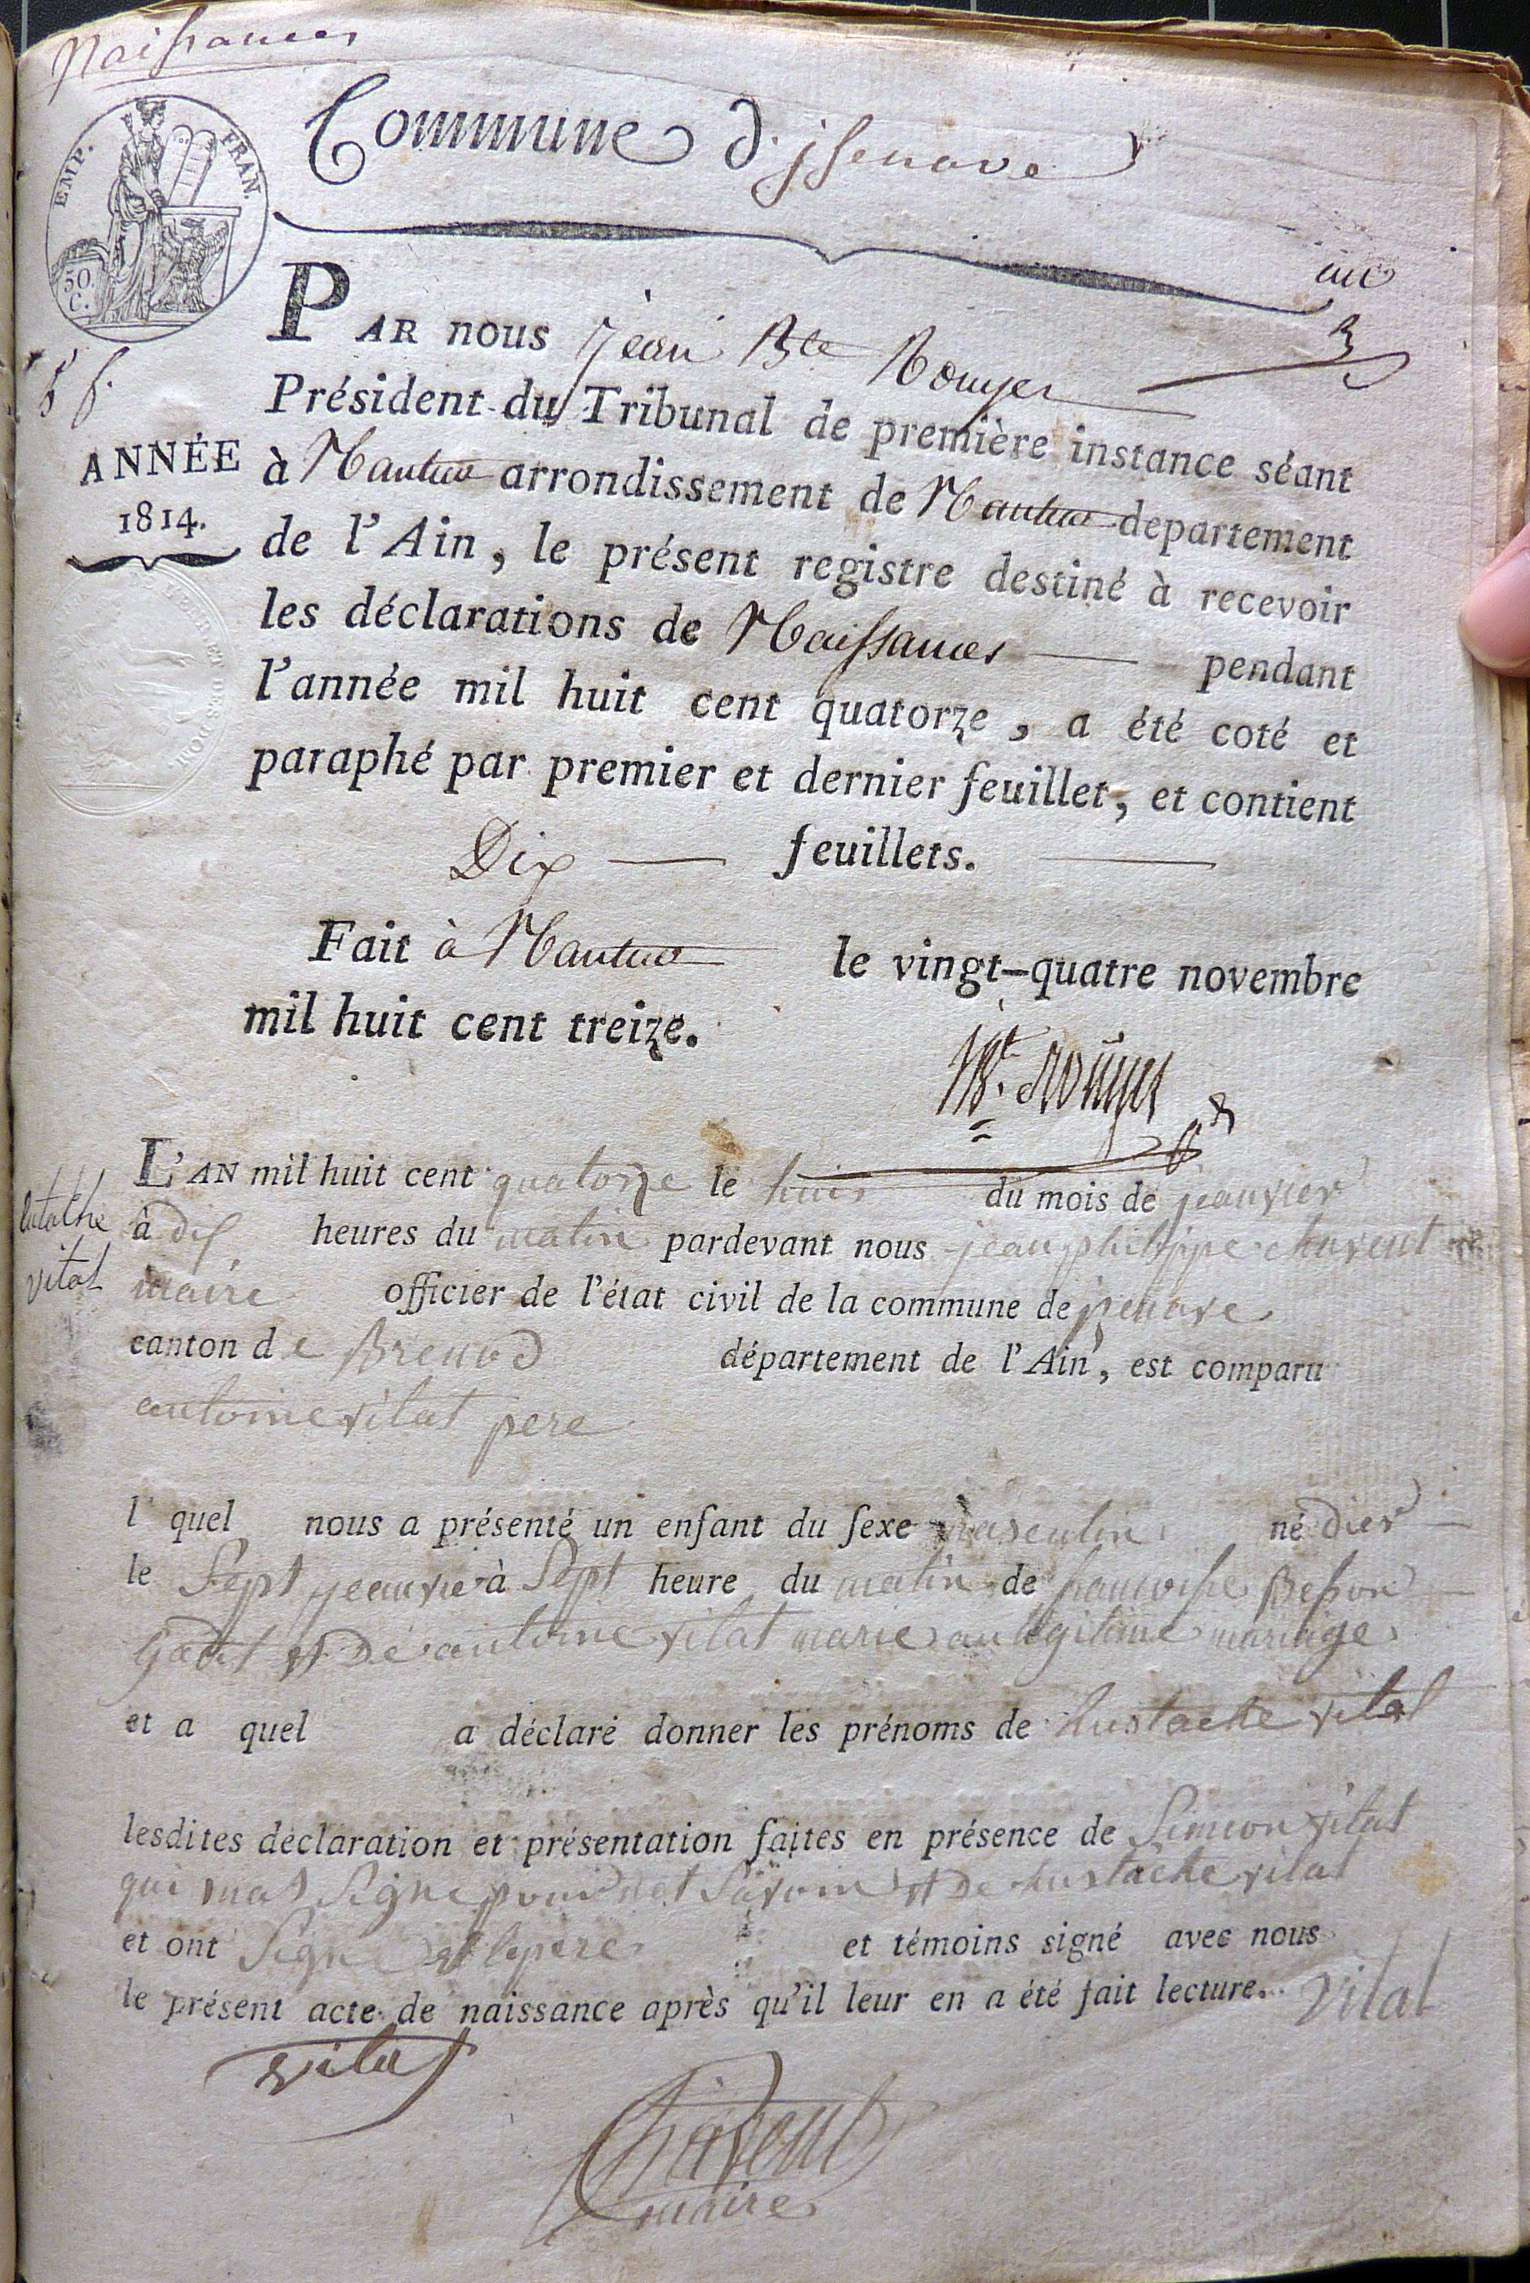 Naissances
Commune d'jsenave
EMP. FRAN.
50 C.
un
PAR nous jean Bte Rouyer
Président du Tribunal de première instance séant
ANNÉE
1814.
à Nantua arrondissement de Nantua departement
de l'Ain, le présent registre destiné à recevoir
les déclarations de Naissances pendant
l'année mil huit cent quatorze, a été coté et
paraphé par premier et dernier feuillet, et contient
Dix feuillets.
Fait à Nantua le vingt-quatre novembre
mil huit cent treize.
Bt. Rouyer
L'AN mil huit cent quatorze le huit du mois de jeanvier
à dis heures du matin pardevant nous jean philippe chavent
vital
maire officier de l'état civil de la commune de jzenave
canton de Brenod département de l'Ain, est comparu
antoine vital pere
l quel nous a présenté un enfant du sexe masculin né dier
le Sept jeanvie à Sept heure du matin de francoise Besson
et De antoine vital marie au legitime mariage
et a quel a déclaré donner les prénoms de Eustache vital
lesdites déclaration et présentation faites en présence de Simeon vital
qui na Signe pour net Savoir et De Eustache vital
et ont Signe et le pere et témoins signé avec nous
le présent acte de naissance après qu'il leur en a été fait lecture. Vital
Vital
Chavent
maire